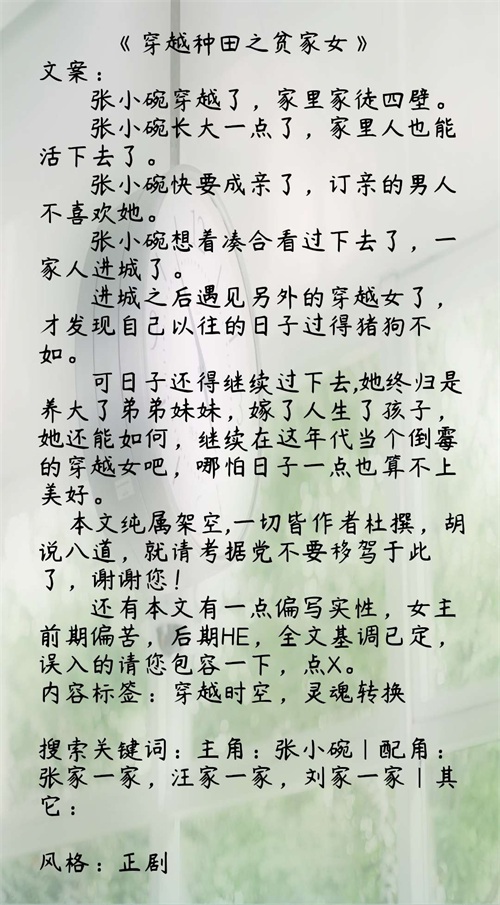 《穿越种田之贫家女》
文案：
张小碗穿越了，家里家徒四壁。
张小碗长大一点了，家里人也能
活下去了。
张小碗快要成亲了，订亲的男人
不喜欢她。
张小碗想着凑合看过下去了，一
家人进城了。
进城之后遇见另外的穿越女了，
才发现自己以往的日子过得猪狗不
如。
可日子还得继续过下去,她终归是
养大了弟弟妹妹，嫁了人生了孩子，
她还能如何，继续在这年代当个倒霉
的穿越女吧，哪怕日子一点也算不上
美好。
本文纯属架空,一切皆作者杜撰，胡
说八道，就请考据党不要移驾于此
了，谢谢您！
还有本文有一点偏写实性，女主
前期偏苦，后期HE，全文基调已定，
误入的请您包容一下，点X。
内容标签：穿越时空，灵魂转换
搜索关键词：主角：张小碗|配角：
张家一家，汪家一家，刘家一家|其
它：
风格：正剧